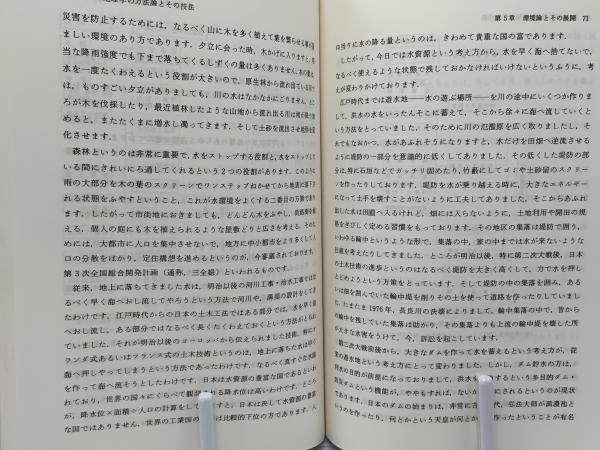 災害を防止するためには、なるべく山に木を多く植えて葉を繁らせる事が
ましい環境のあり方であります。夕立に会った時、木かげに入りますと、
当な降雨強度でも下まで落ちてくるしずくの量は多くありません。
水を一度たくわえるという役割が大きいので、原生林から流れ出ている川で
は、ものすごい夕立がありましても、川の水はなかなかににごりません。
ろが木を伐採したり、最近植林したような山地から流れ出る川は雨が降り
めると、またたくまに増水し濁ってきます。そして土砂を流出させ地形を
化させます。
森林というのは非常に重要で、水をストップする役割と、水をストップして
いる間にきれいにろ過してくれるという2つの役割があります。このように
雨の大部分を木の葉のスクリーンでワンステップおかせてから地表に落下さ
れる状態をふやすということ、これが水環境をよくする二番目の方策であり
ます。したがって市街地におきましても、どんどん木をふやし、街路樹を植
える。個人の庭にも木を植えられるような屋敷どりと広さを考える。そのた
めには、大都市に人口を集中させないで、地方に中小都市をより多くして人
口の分散をはかり、定住構想を進めるというのが、今審議されております。
第3次全国総合開発計画（通称、三全総）といわれるものです。
従来、地上に落ちてきました水は、明治以後の河川工事・治水工事では
なるべく早く海へおし流してやろうという方法で河川や、溝渠の設計をしてき
たわけです。江戸時代からの日本の土木工法ではある部分では、水を早く
へおし流し、ある部分ではなるべく長くたくわえておくという方法がとられ
ていました。それが明治以後のヨーロッパから伝えられました技術、特にオ
ランダ式あるいはフランス式の土木技術というのは、地上に落ちた水は早く
海へ押しやってしまうという方法であったわけです。なるべく真すぐな水路
を作って海へ流そうとしたわけです。日本は水資源の豊富な国であるといわ
れて、世界の国々にくらべて降水位は高いわけです。ところ
が、降水位×面積÷人口の計算をしてますと、日本は決して水資源の豊富
な国ではありません。世界の工業国の中では比較的下位の方であります。
第5章　環境論とその展開　71
口当りに水の降る量というのは、きわめて貴重な国の富であります。
したがって、今日では水資源という考え方から、水を早く海へ捨てないで、
なるべく使えるような状態で残しておかなければいけないというふうに、考
えが変わりかけております。
江戸時代までは遊水地──水の遊ぶ場所──を川の途中にいくつか作りま
して、洪水の水をいったんそこに蓄えて、そこから徐々に海へ流していくと
いう方法をとっていました。そのために川の氾濫原を広く取りましたし、そ
れでもなおかつ、水があふれそうになりますと、水だけを田畑へ逆流させる
ように堤防の一部分を意識的に低くしてありました。その低くした堤防の部
分は、特に石垣などでガッチリ固めたり、竹藪にしてゴミや土砂留のスクリー
ンを作ったりしております。堤防を水が乗り越える時に、大きなエネルギー
になって土手を壊すことがないように工夫してありました。そこからあふれ
出た水は田圃へ入るけれど、畑には入らないように、土地利用や開田の規
格をきびしく定める習慣をもっております。その地区の集落は堤防で囲う、
いわゆる輪中というような形で、集落の中、家の中までは水が来ないような
仕組をしてあったわけです。ところが明治以後、特に第二次大戦後、日本
の土木技術の進歩というのはなるべく堤防を大きく高くして、力で水を押し
とどめようという方策をとっています。そして堤防の中の集落を囲み、ある
いは畑を囲んでいた輪中堤を削りその土を使って道路を作ったりしていまし
た。たまたま1976年、長良川の決壊によりまして、輪中堤防の中で、昔から
の輪中を残していた集落は助かり、その集落よりも上流の輪中堤を壊した所
が大きな水害をうけて、今、訴訟を起こしています。
第二次大戦後から、大きなダムを作って水を蓄えるという考え方が、従
来の遊水地という考え方にとって変わりました。しかし、ダム貯水の方は、
貯水の目的が病根になっておりまして、洪水を するという多目的ダム・
ダムという機能が、ややもすれば、ない にされるというのが現状
であります。日本のダムの始まりは、非常に古 代、弘法大師が満濃池と
いうのを作ったり、何とかという天皇が何とか 作ったということが有名